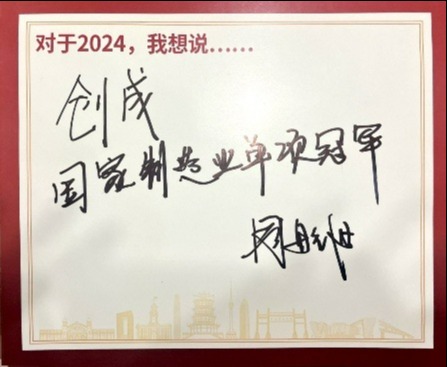 对于2024，我想说……
创成
国家制造业单项冠军